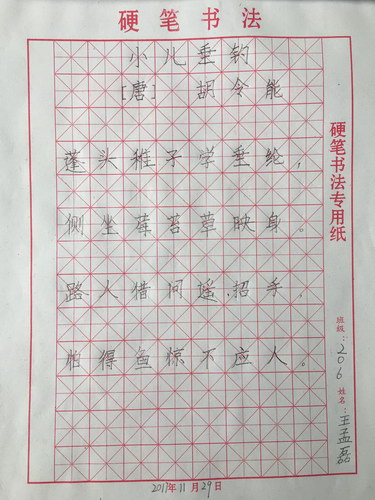 硬笔书法
小儿垂钓
[唐] 胡令能
蓬头稚子学垂纶，
侧坐莓苔草映身。
路人借问遥招手，
怕得鱼惊不应人。
硬笔书法专用纸
班级：206 姓名：王孟磊
2017年11月29日